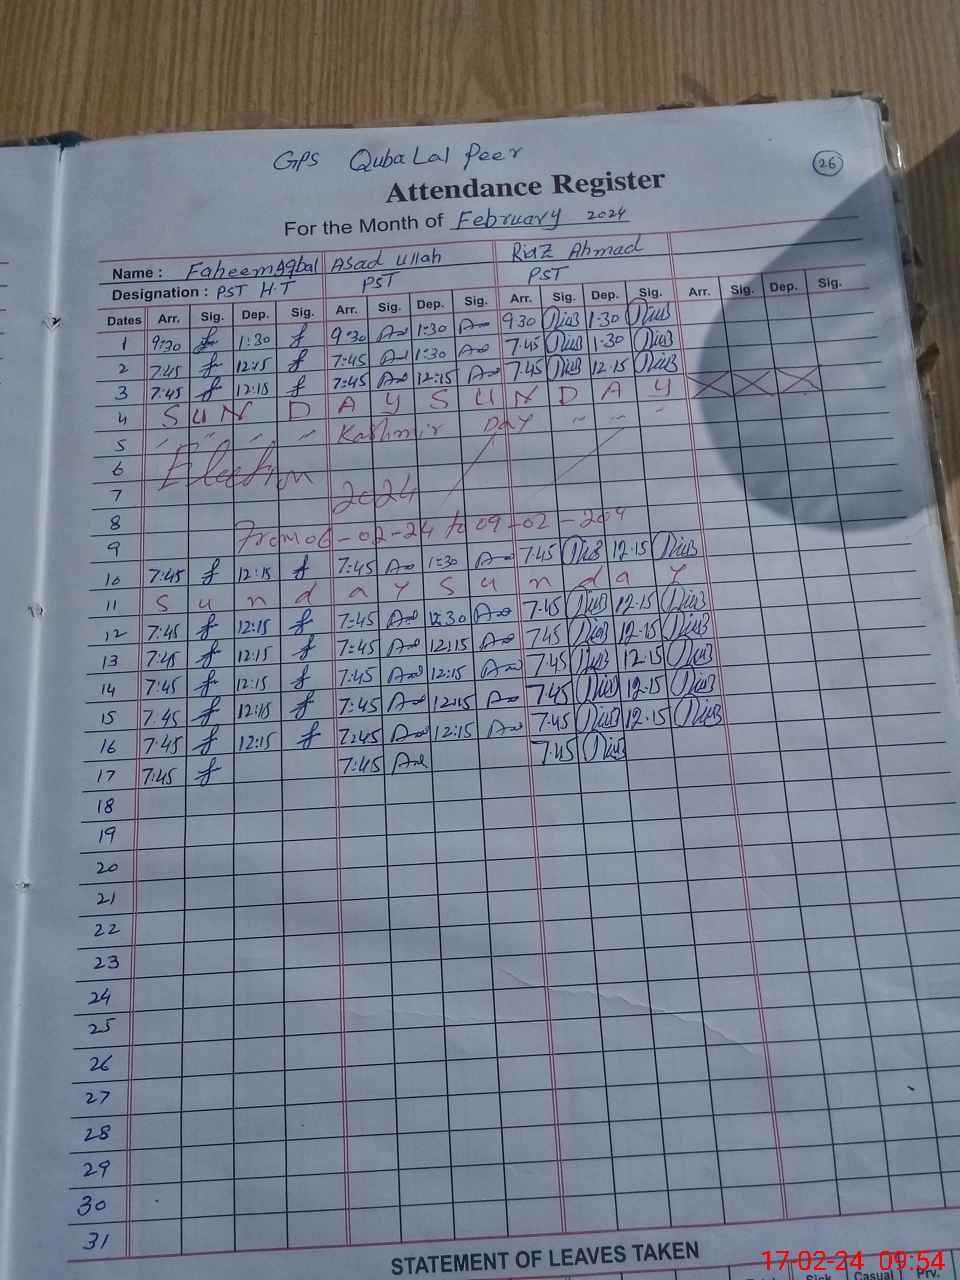 GPS Quba Lal Peer
26
Attendance Register
For the Month of February 2024
Name : Faheem Iqbal Asad ullah Riaz Ahmad
Designation : PST H.T PST PST
Dates Arr. Sig. Dep. Sig. Arr. Sig. Dep. Sig. Arr. Sig. Dep. Sig. Arr. Sig. Dep. Sig.
1 9:30 1:30 9:30 1:30 9 30 1.30
2 7:45 12:15 7:45 1:30 7.45 1.30
3 7:45 12:15 7:45 12:15 7.45 12.15
4 S U N D A Y S U N D A Y
5 Kashmir Day
6 Election
7 2024
8
9 From 06-02-24 to 09-02-204
10 7:45 12:15 7:45 1:30 7:45 12.15
11 S u n d a y S u n d a y
12 7:45 12:15 7:45 12:30 7.45 12.15
13 7:45 12:15 7:45 12:15 7.45 12.15
14 7:45 12:15 7:45 12:15 7.45 12.15
15 7:45 12:15 7:45 12:15 7.45 12.15
16 7:45 12:15 7:45 12:15 7.45 12.15
17 7:45 7:45 7.45
18
19
20
21
22
23
24
25
26
27
28
29
30
31
STATEMENT OF LEAVES TAKEN
Sick Casual Prv.
17-02-24 09:54